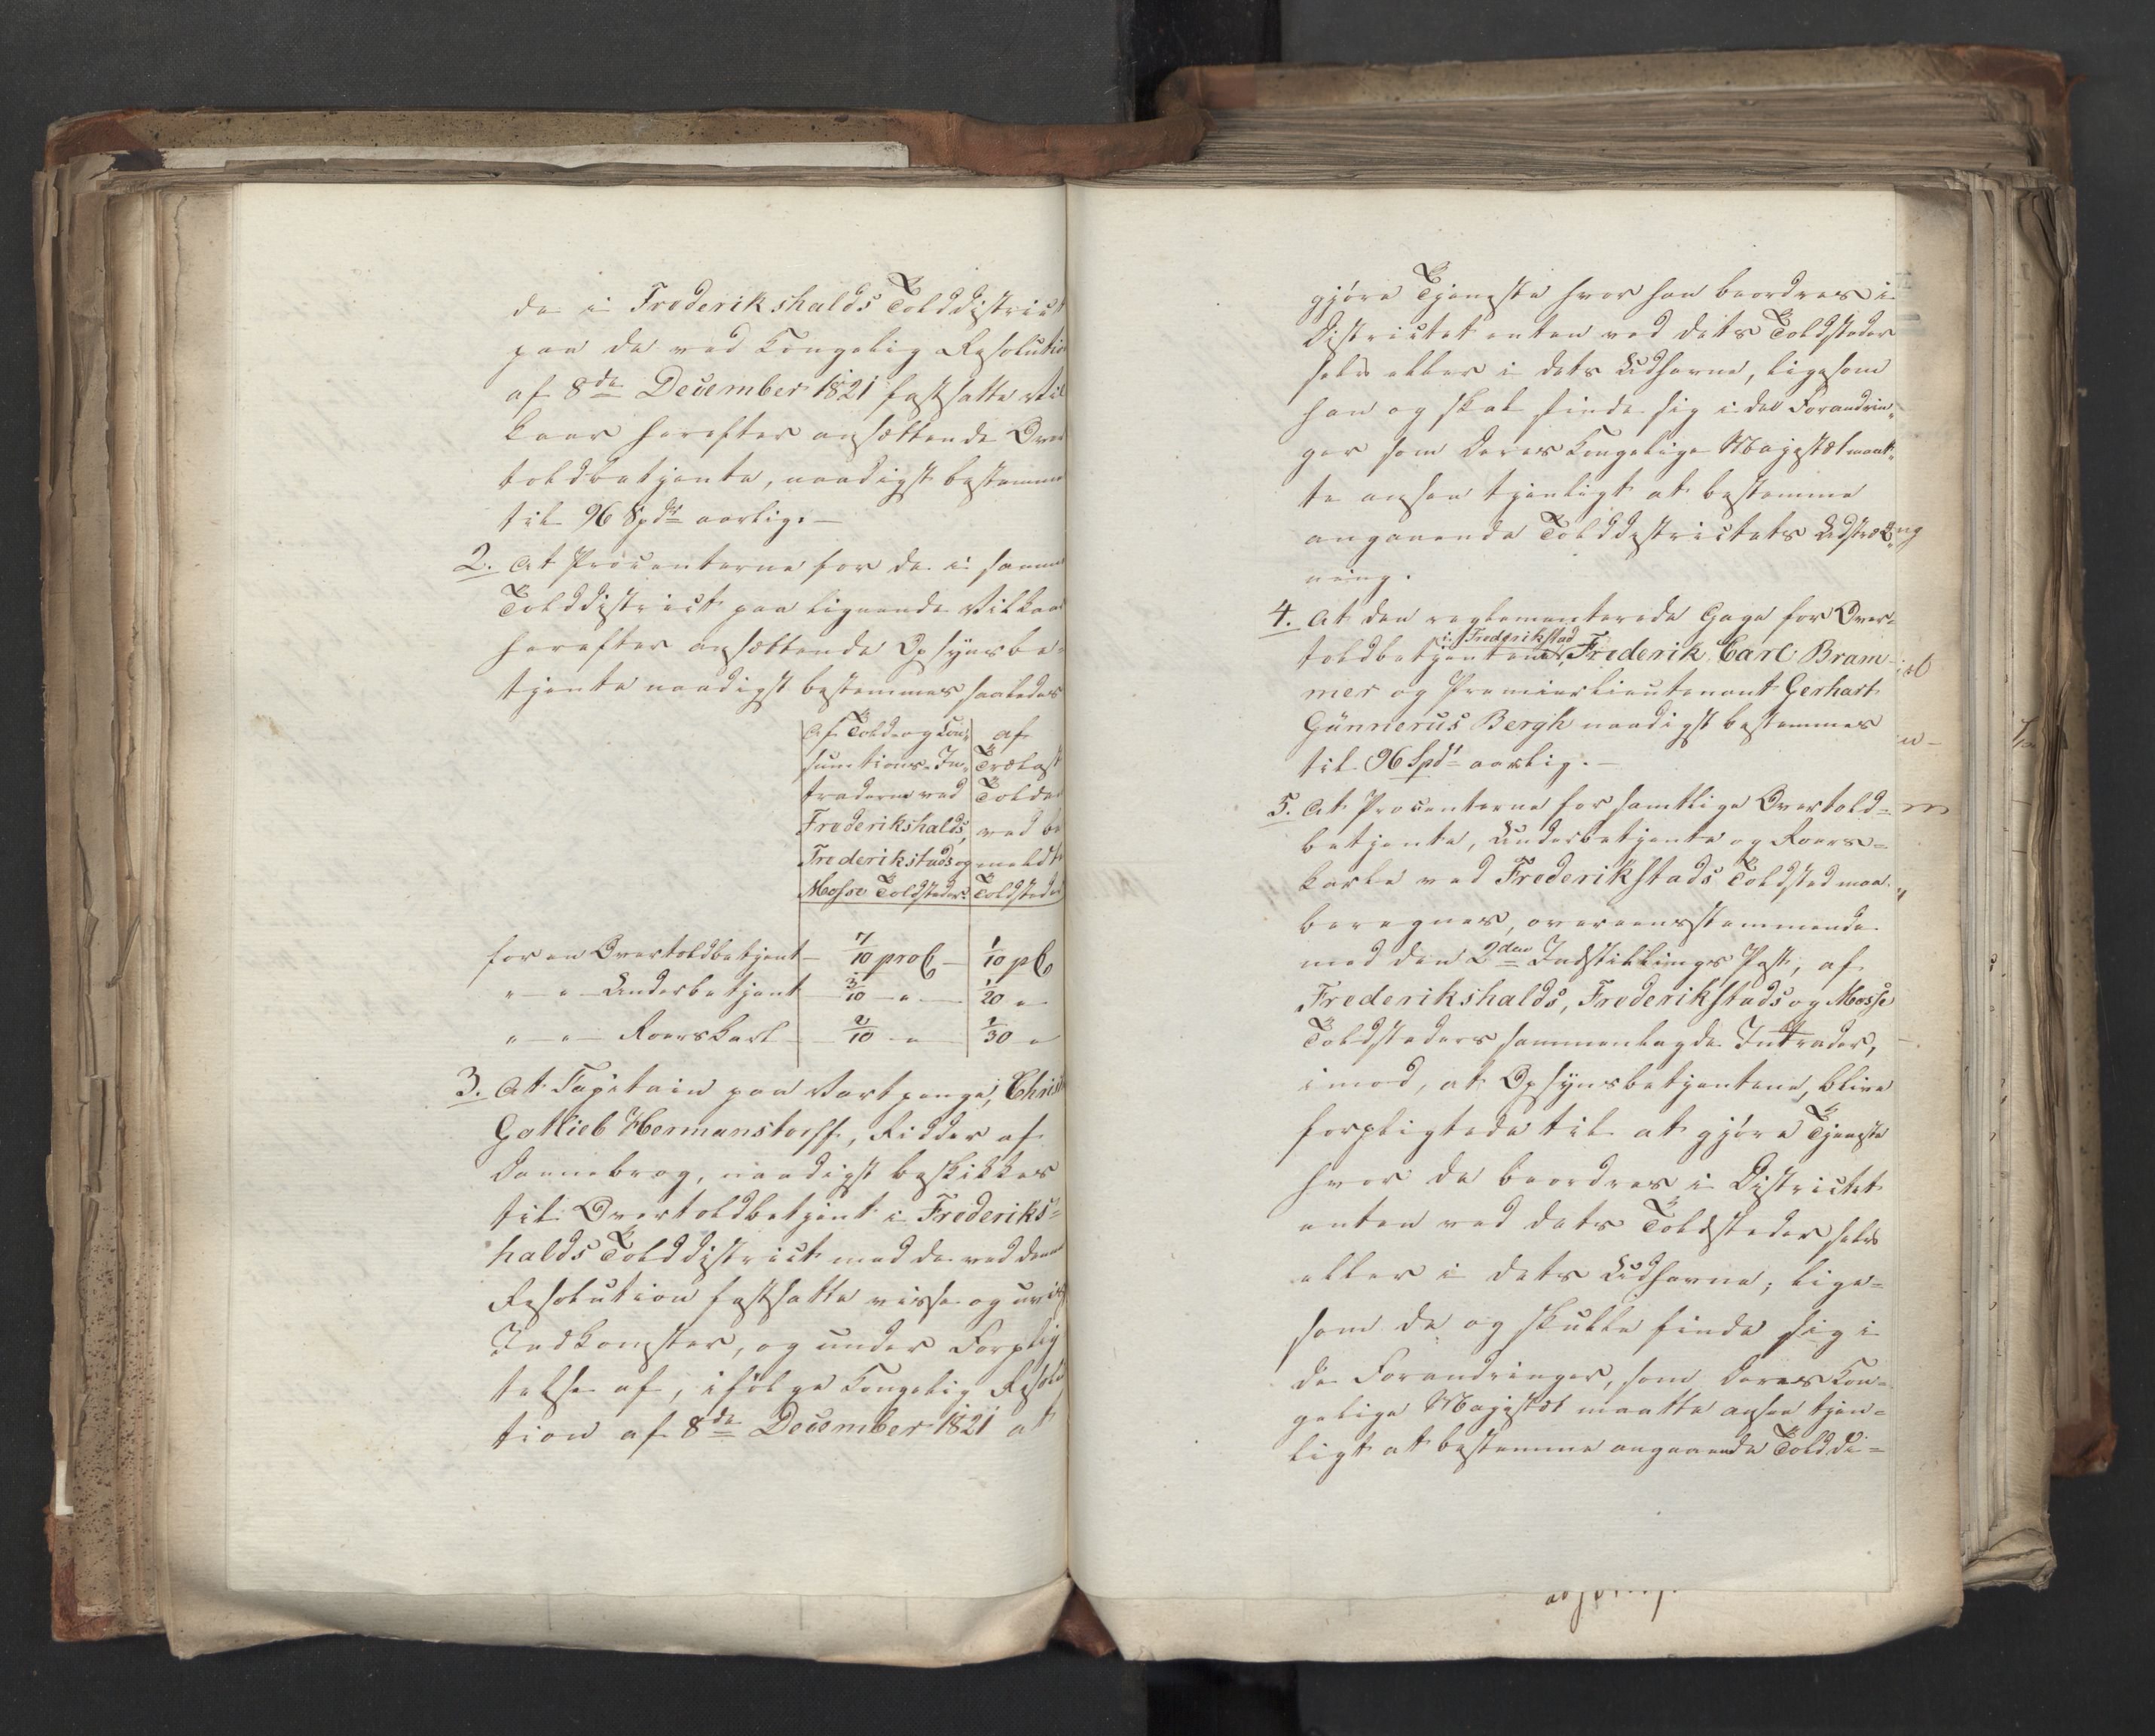 de i Frederikshalds Tolddistrict
paa de ved Kongelig Resolution
af 8de December 1821 fastsatte Vil
kaar herefter ansættende Over
toldbetjente, naadigst bestemmes
til 96 Spdr aarlig. –
2. At Procenterne for de i samme
Tolddistrict paa lignende Vilkaar
herefter ansættende Opsynsbe-
tjente naadigst bestemmes saaledes
Af Told- og Con-
sumtions-In-
traderne ved
Frederikshalds,
Frederikstads og
Mosse Toldsteder.
af
Trælast
Tolden
ved be
meldte
Toldsteder
for en Overtoldbetjent – 7/10 proC – 1/10 pC
" – " – Underbetjent – 3/10 – " – 1/20 "
" – " – Roerskarl – 2/10 – " – 1/30 "
3. At Capitain paa Vartpenge, Christ
Gotlieb Hermanstorff, Ridder af
Dannebrog, naadigst beskikkes
til Overtoldbetjent i Frederiks-
halds Tolddistrict med de ved denne
Resolution fastsatte visse og uvisse
Indkomster, og under Forplig
telse af, ifølge Kongelig Resolu
tion af 8de December 1821 at
gjøre Tjeneste hvor han beordres i
Districtet enten ved dets Toldsteder
selv eller i dets Udhavne, ligesom
han og skal finde sig i de Forandrin-
ger som Deres Kongelige Majestæt maat-
te ansee tjenligt at bestemme
angaaende Tolddistrictets Udstræk-
ning.
4. At den reglementerede Gage for Over-
toldbetjentene i Frederikstad, Frederik Carl Bram
mer og Premierlieutenant Gerhart
Günnerus Bergh naadigst bestemmes
til 96 Spdr aarlig. –
5. At Procenterne for samtlige Overtold-
betjente, Underbetjente og Roers-
karle ved Frederikstads Toldsted maa
beregnes, overeensstemmende
med den 2den Indstillings Post, af
Frederikshalds, Frederikstads og Mosse
Toldsteders sammenlagde Intrader,
imod, at Opsynsbetjentene, blive
forpligtede til at gjøre Tjeneste
hvor de beordres i Districtet
enten ved dets Toldsteder selv
eller i dets Udhavne; lige-
som de og skulle finde sig i
de Forandringer, som Deres Kon-
gelige Majestæt maatte ansee tjen-
ligt at bestemme angaaende Tolddi-